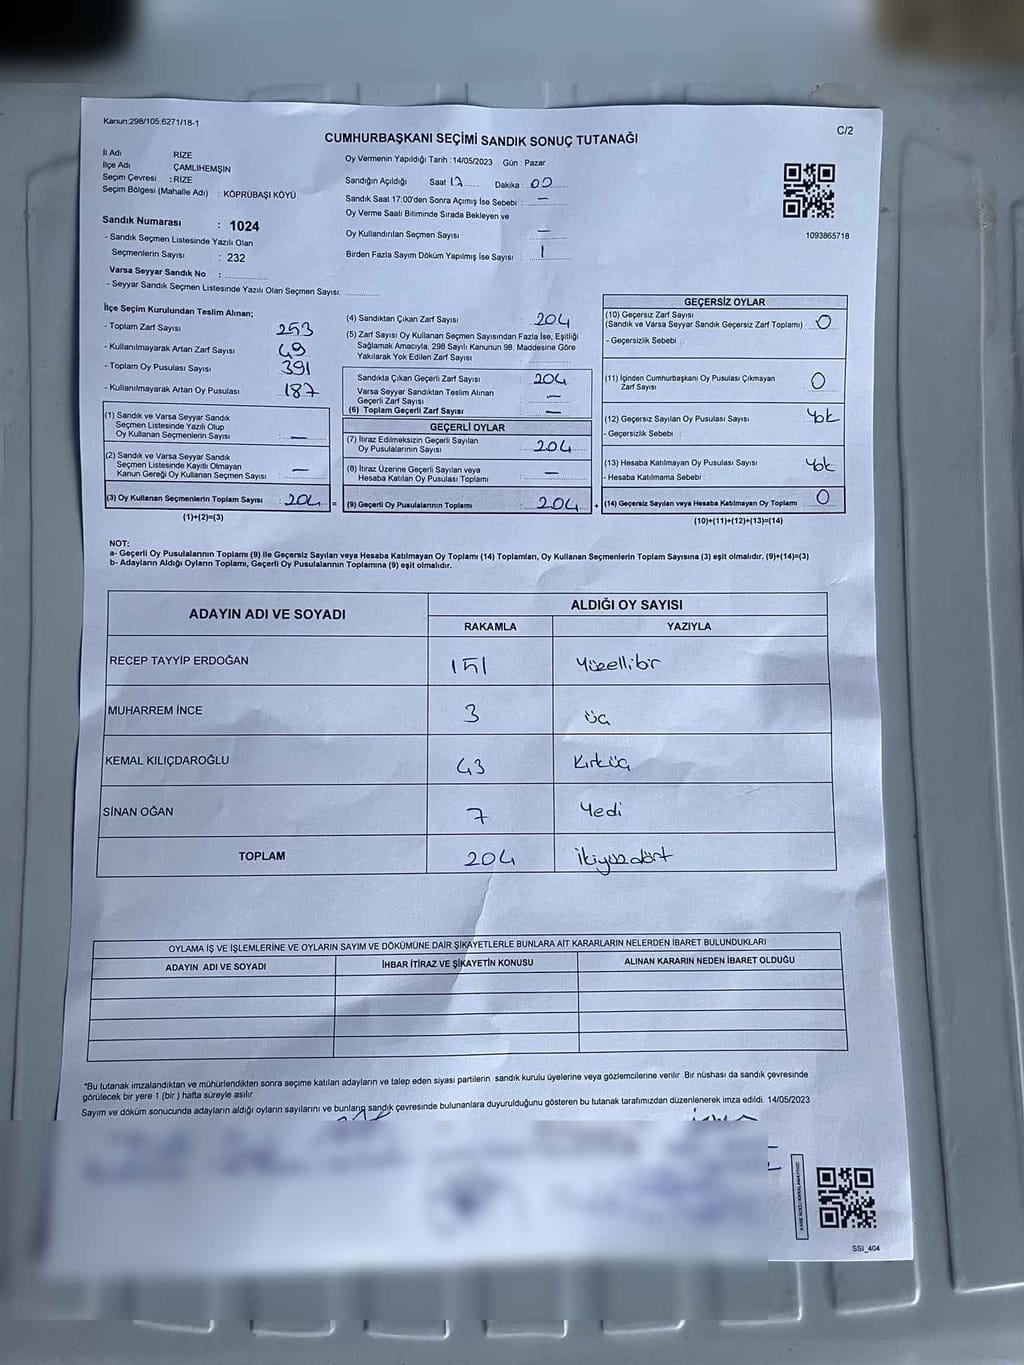 Kanun;298/105,6271/18-1
C/2
CUMHURBAŞKANI SEÇİMİ SANDIK SONUÇ TUTANAĞI
İl Adı : RİZE
İlçe Adı : ÇAMLIHEMŞİN
Seçim Çevresi : RİZE
Seçim Bölgesi (Mahalle Adı) : KÖPRÜBAŞI KÖYÜ
Sandık Numarası : 1024
- Sandık Seçmen Listesinde Yazılı Olan
Seçmenlerin Sayısı : 232
Varsa Seyyar Sandık No :
- Seyyar Sandık Seçmen Listesinde Yazılı Olan Seçmen Sayısı:
Oy Vermenin Yapıldığı Tarih : 14/05/2023 Gün : Pazar
Sandığın Açıldığı Saat 17 Dakika : 00
Sandık Saat 17:00'den Sonra Açımış İse Sebebi : —
Oy Verme Saati Bitiminde Sırada Bekleyen ve
Oy Kullandırılan Seçmen Sayısı —
Birden Fazla Sayım Döküm Yapılmış İse Sayısı : 1
1093865718
İlçe Seçim Kurulundan Teslim Alınan;
- Toplam Zarf Sayısı 253
- Kullanılmayarak Artan Zarf Sayısı 49
- Toplam Oy Pusulası Sayısı 391
- Kullanılmayarak Artan Oy Pusulası 187
(1) Sandık ve Varsa Seyyar Sandık
Seçmen Listesinde Yazılı Olup
Oy Kullanan Seçmenlerin Sayısı : —
(2) Sandık ve Varsa Seyyar Sandık
Seçmen Listesinde Kayıtlı Olmayan
Kanun Gereği Oy Kullanan Seçmen Sayısı : —
(3) Oy Kullanan Seçmenlerin Toplam Sayısı : 204 =
(1)+(2)=(3)
(4) Sandıktan Çıkan Zarf Sayısı : 204
(5) Zarf Sayısı Oy Kullanan Seçmen Sayısından Fazla İse, Eşitliği
Sağlamak Amacıyla, 298 Sayılı Kanunun 98. Maddesine Göre
Yakılarak Yok Edilen Zarf Sayısı
Sandıkta Çıkan Geçerli Zarf Sayısı : 204
Varsa Seyyar Sandıktan Teslim Alınan
Geçerli Zarf Sayısı : —
(6) Toplam Geçerli Zarf Sayısı : —
GEÇERLİ OYLAR
(7) İtiraz Edilmeksizin Geçerli Sayılan
Oy Pusulalarının Sayısı : 204
(8) İtiraz Üzerine Geçerli Sayılan veya
Hesaba Katılan Oy Pusulası Toplamı : —
(9) Geçerli Oy Pusulalarının Toplamı : 204 +
GEÇERSİZ OYLAR
(10) Geçersiz Zarf Sayısı
(Sandık ve Varsa Seyyar Sandık Geçersiz Zarf Toplamı) : 0
- Geçersizlik Sebebi :
(11) İçinden Cumhurbaşkanı Oy Pusulası Çıkmayan
Zarf Sayısı 0
(12) Geçersiz Sayılan Oy Pusulası Sayısı : Yok
- Geçersizlik Sebebi :
(13) Hesaba Katılmayan Oy Pusulası Sayısı : Yok
- Hesaba Katılmama Sebebi :
(14) Geçersiz Sayılan veya Hesaba Katılmayan Oy Toplamı : 0
(10)+(11)+(12)+(13)=(14)
NOT:
a- Geçerli Oy Pusulalarının Toplamı (9) ile Geçersiz Sayılan veya Hesaba Katılmayan Oy Toplamı (14) Toplamları, Oy Kullanan Seçmenlerin Toplam Sayısına (3) eşit olmalıdır. (9)+(14)=(3)
b- Adayların Aldığı Oyların Toplamı, Geçerli Oy Pusulalarının Toplamına (9) eşit olmalıdır.
ADAYIN ADI VE SOYADI
ALDIĞI OY SAYISI
RAKAMLA YAZIYLA
RECEP TAYYİP ERDOĞAN 151 Yüzellibir
MUHARREM İNCE 3 üç
KEMAL KILIÇDAROĞLU 43 Kırküç
SİNAN OĞAN 7 Yedi
TOPLAM 204 İkiyüzdört
OYLAMA İŞ VE İŞLEMLERİNE VE OYLARIN SAYIM VE DÖKÜMÜNE DAİR ŞİKAYETLERLE BUNLARA AİT KARARLARIN NELERDEN İBARET BULUNDUKLARI
ADAYIN ADI VE SOYADI İHBAR İTİRAZ VE ŞİKAYETİN KONUSU ALINAN KARARIN NEDEN İBARET OLDUĞU
*Bu tutanak imzalandıktan ve mühürlendikten sonra seçime katılan adayların ve talep eden siyasi partilerin sandık kurulu üyelerine veya gözlemcilerine verilir .Bir nüshası da sandık çevresinde
görülecek bir yere 1 (bir ) hafta süreyle asılır
Sayım ve döküm sonucunda adayların aldığı oyların sayılarını ve bunların sandık çevresinde bulunanlara duyurulduğunu gösteren bu tutanak tarafımızdan düzenlenerek imza edildi. 14/05/2023
SSI_404